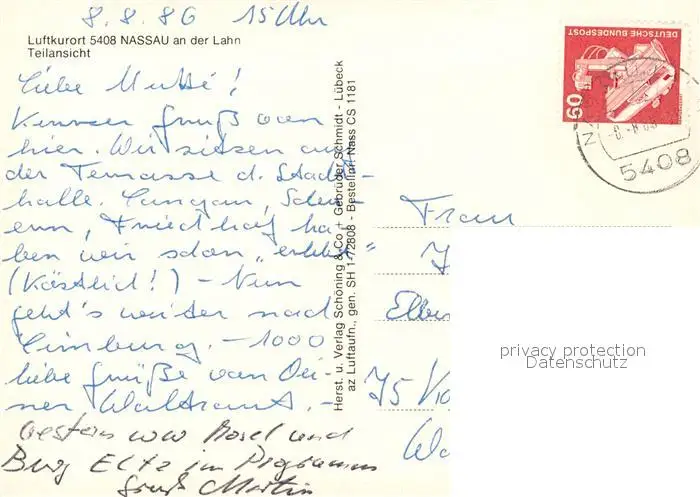 8.8.86 15 Uhr
Luftkurort 5408 NASSAU an der Lahn
Teilansicht
Liebe Mutti!
Kurzer Gruß von
hier. Wir sitzen auf
der Terrasse d. Stadt-
halle.
Friedhof ha-
ben wir schon „erlebt"
(Köstlich!) - Nun
geht's weiter nach
Limburg. - 1000
liebe Grüße von Dei-
ner Waltraut.-
Gestern war Mosel und
Burg Eltz im Programm
Gruß Martin
Herst. u. Verlag Schöning & Co + Gebrüder Schmidt - Lübeck
az Luftaufn., gen. SH 1-72808 - Bestellnr. Nass CS 1181
DEUTSCHE BUNDESPOST
60
5408
Frau
privacy protection
Datenschutz